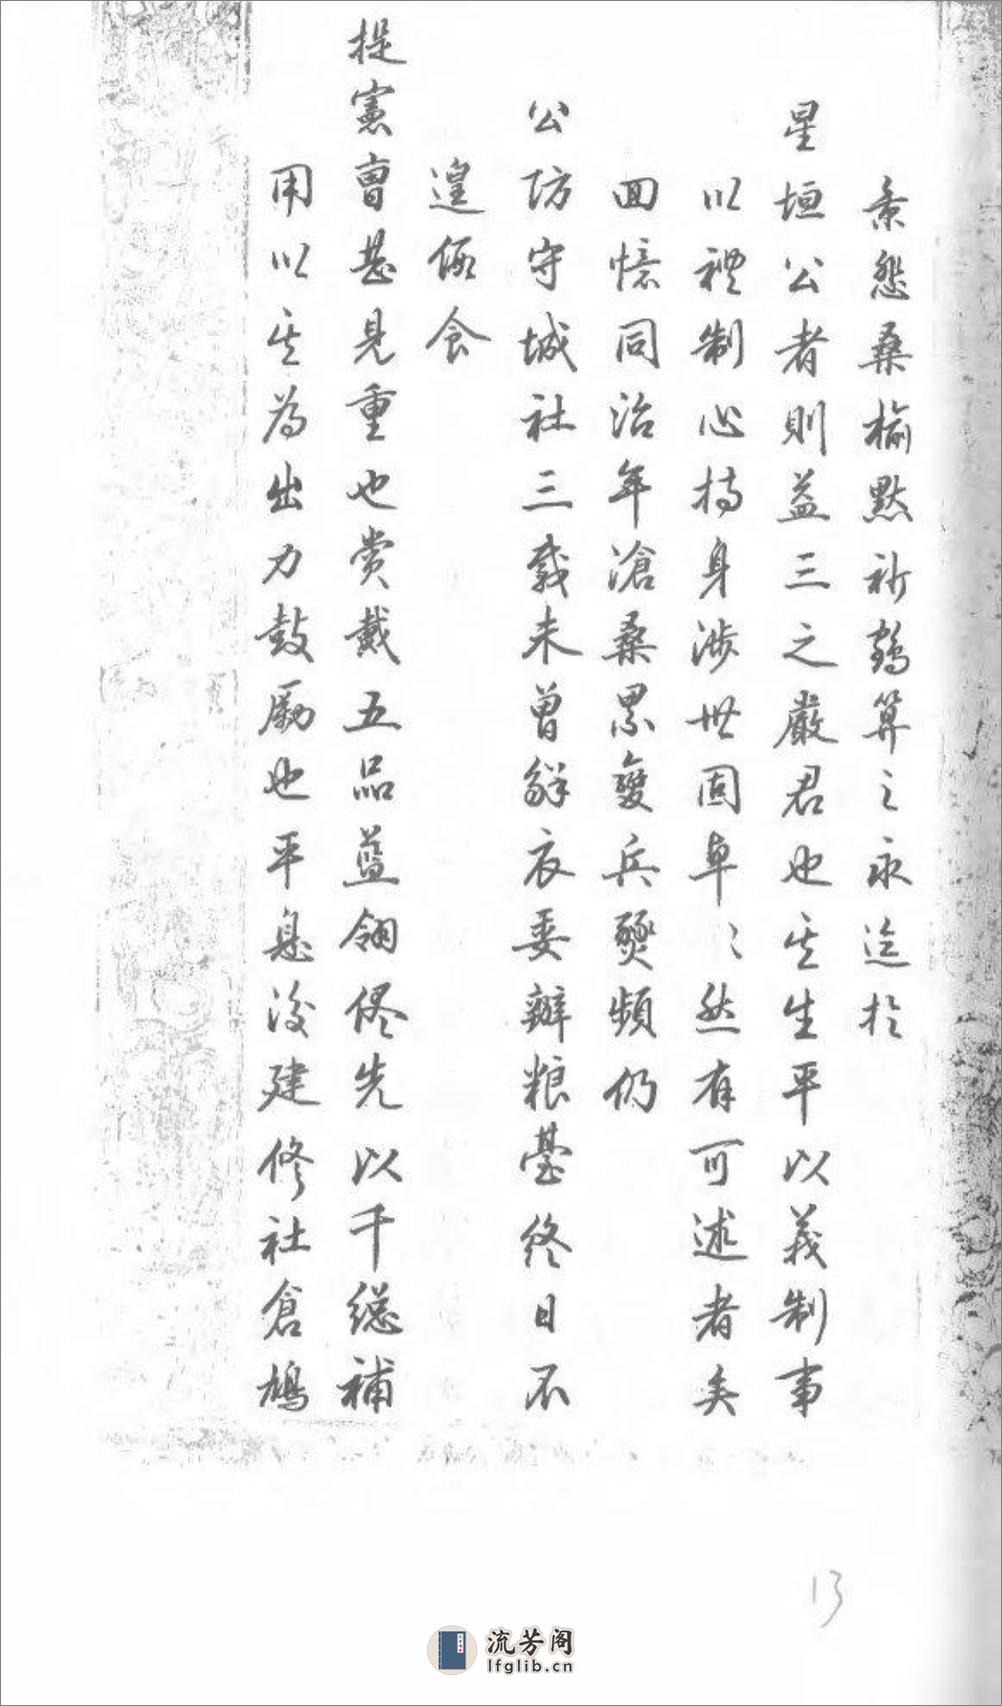 景愁桑榆默祈鶴算之永迄於
星垣公者則益三之嚴君也其生平以義制事
以禮制心持身涉世固卓々然有可述者矣
回憶同治年滄桑累變兵燹頻仍
公防守城社三載未曾解衣委辦粮臺終日不
遑假食
提憲曹甚見重也賞戴五品藍翎儘先以千總補
用以其為出力鼓勵也平息後建修社倉鳩
13
流芳阁
lfglib.cn